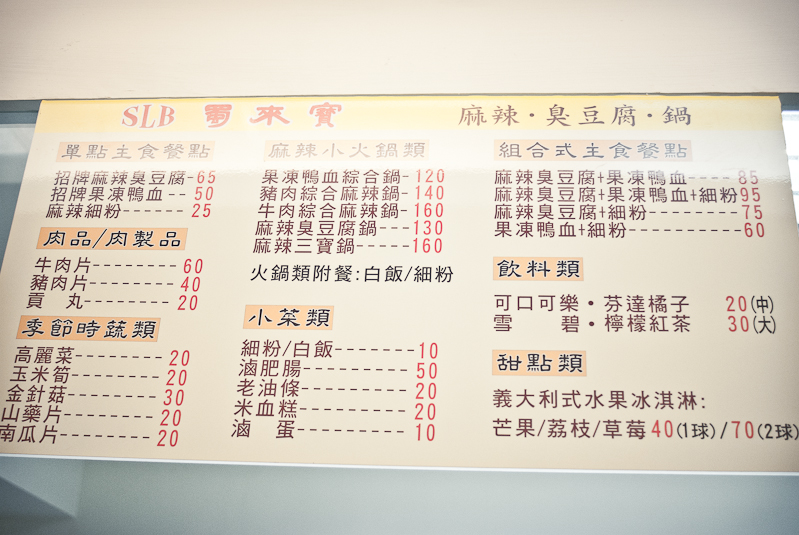 SLB 蜀來寶 麻辣·臭豆腐·鍋
單點主食餐點
招牌麻辣臭豆腐-65
招牌果凍鴨血--- 50
麻辣細粉------ 25
肉品/肉製品
牛肉片--------60
豬肉片--------40
貢 丸--------20
季節時蔬類
高麗菜--------20
玉米筍--------20
金針菇--------30
山藥片--------20
南瓜片--------20
麻辣小火鍋類
果凍鴨血綜合鍋-120
豬肉綜合麻辣鍋-140
牛肉綜合麻辣鍋-160
麻辣臭豆腐鍋---130
麻辣三寶鍋-----160
火鍋類附餐:白飯/細粉
小菜類
細粉/白飯-------10
滷肥腸---------50
老油條---------20
米血糕---------20
滷 蛋---------10
組合式主食餐點
麻辣臭豆腐+果凍鴨血----85
麻辣臭豆腐+果凍鴨血+細粉95
麻辣臭豆腐+細粉--------75
果凍鴨血+細粉----------60
飲料類
可口可樂·芬達橘子 20(中)
雪 碧·檸檬紅茶 30(大)
甜點類
義大利式水果冰淇淋:
芒果/荔枝/草莓40(1球)/70(2球)